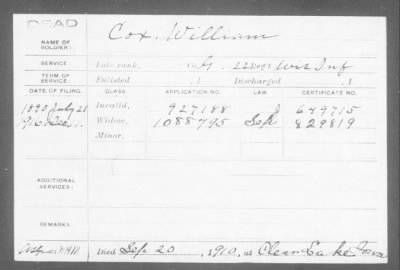 DEAD
NAME OF SOLDIER: Cox, William
SERVICE: Late rank, Co. G, 22 Reg't Wis Inf
TERM OF SERVICE: Enlisted , 1 Discharged , 1
DATE OF FILING. CLASS. APPLICATION NO. LAW. CERTIFICATE NO.
1890 July 21 Invalid, 927188 649715
1910 Dec 1 Widow, 1088795 829819
Minor,
ADDITIONAL SERVICES:
REMARKS:
Died Sep 20, 1910, at Clear Lake Iowa